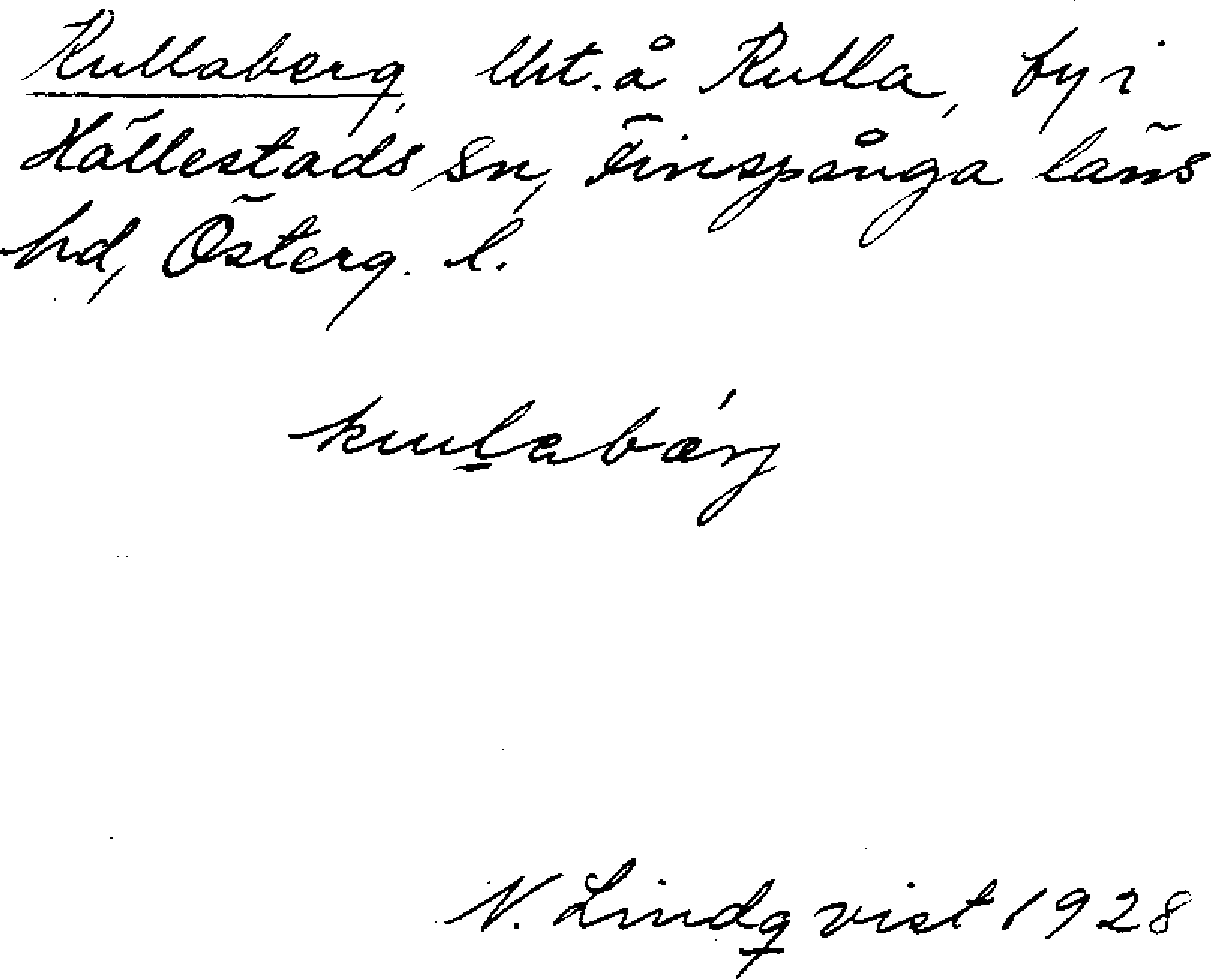 Kullaberg, lht. å Kulla, by i
Hällestads sn, Finspånga läns
hd, Österg. l.
kullabärj
N. Lindqvist 1928